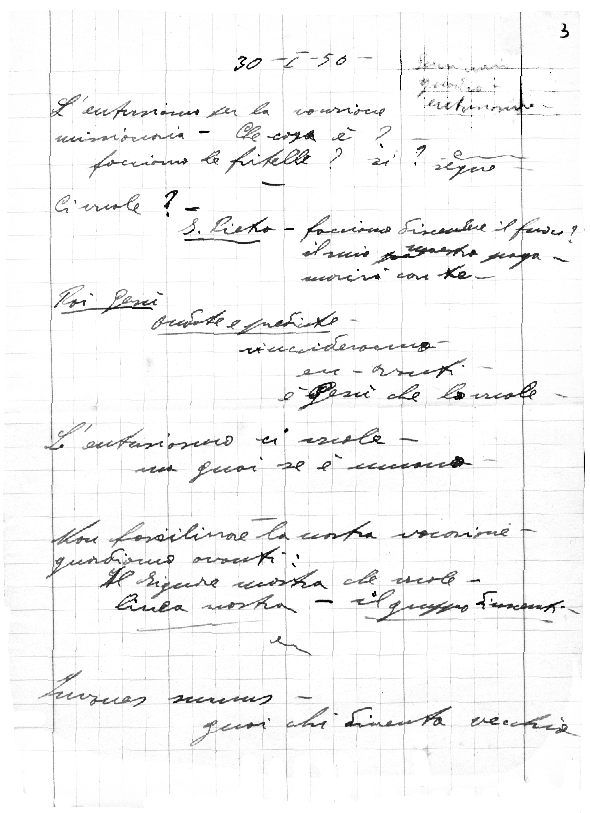 3
30-I-50-
L'entusiasmo per la vocazione
missionaria - Che cosa è?
facciamo le fritelle? si? segue
Ci vuole? -
S. Pietro - facciamo discendere il fuoco?
il mio maestro paga -
morirò con te -
Poi Gesù
andate e predicate -
vi uccideranno
en - avanti -
è Gesù che lo vuole -
L'entusiasmo ci vuole -
ma guai se è umano -
Non fossilizzare la nostra vocazione -
guardiamo avanti:
Il Signore mostra che vuole -
linea nostra - il gruppo
en
Iuvenes sumus -
guai chi diventa vecchio